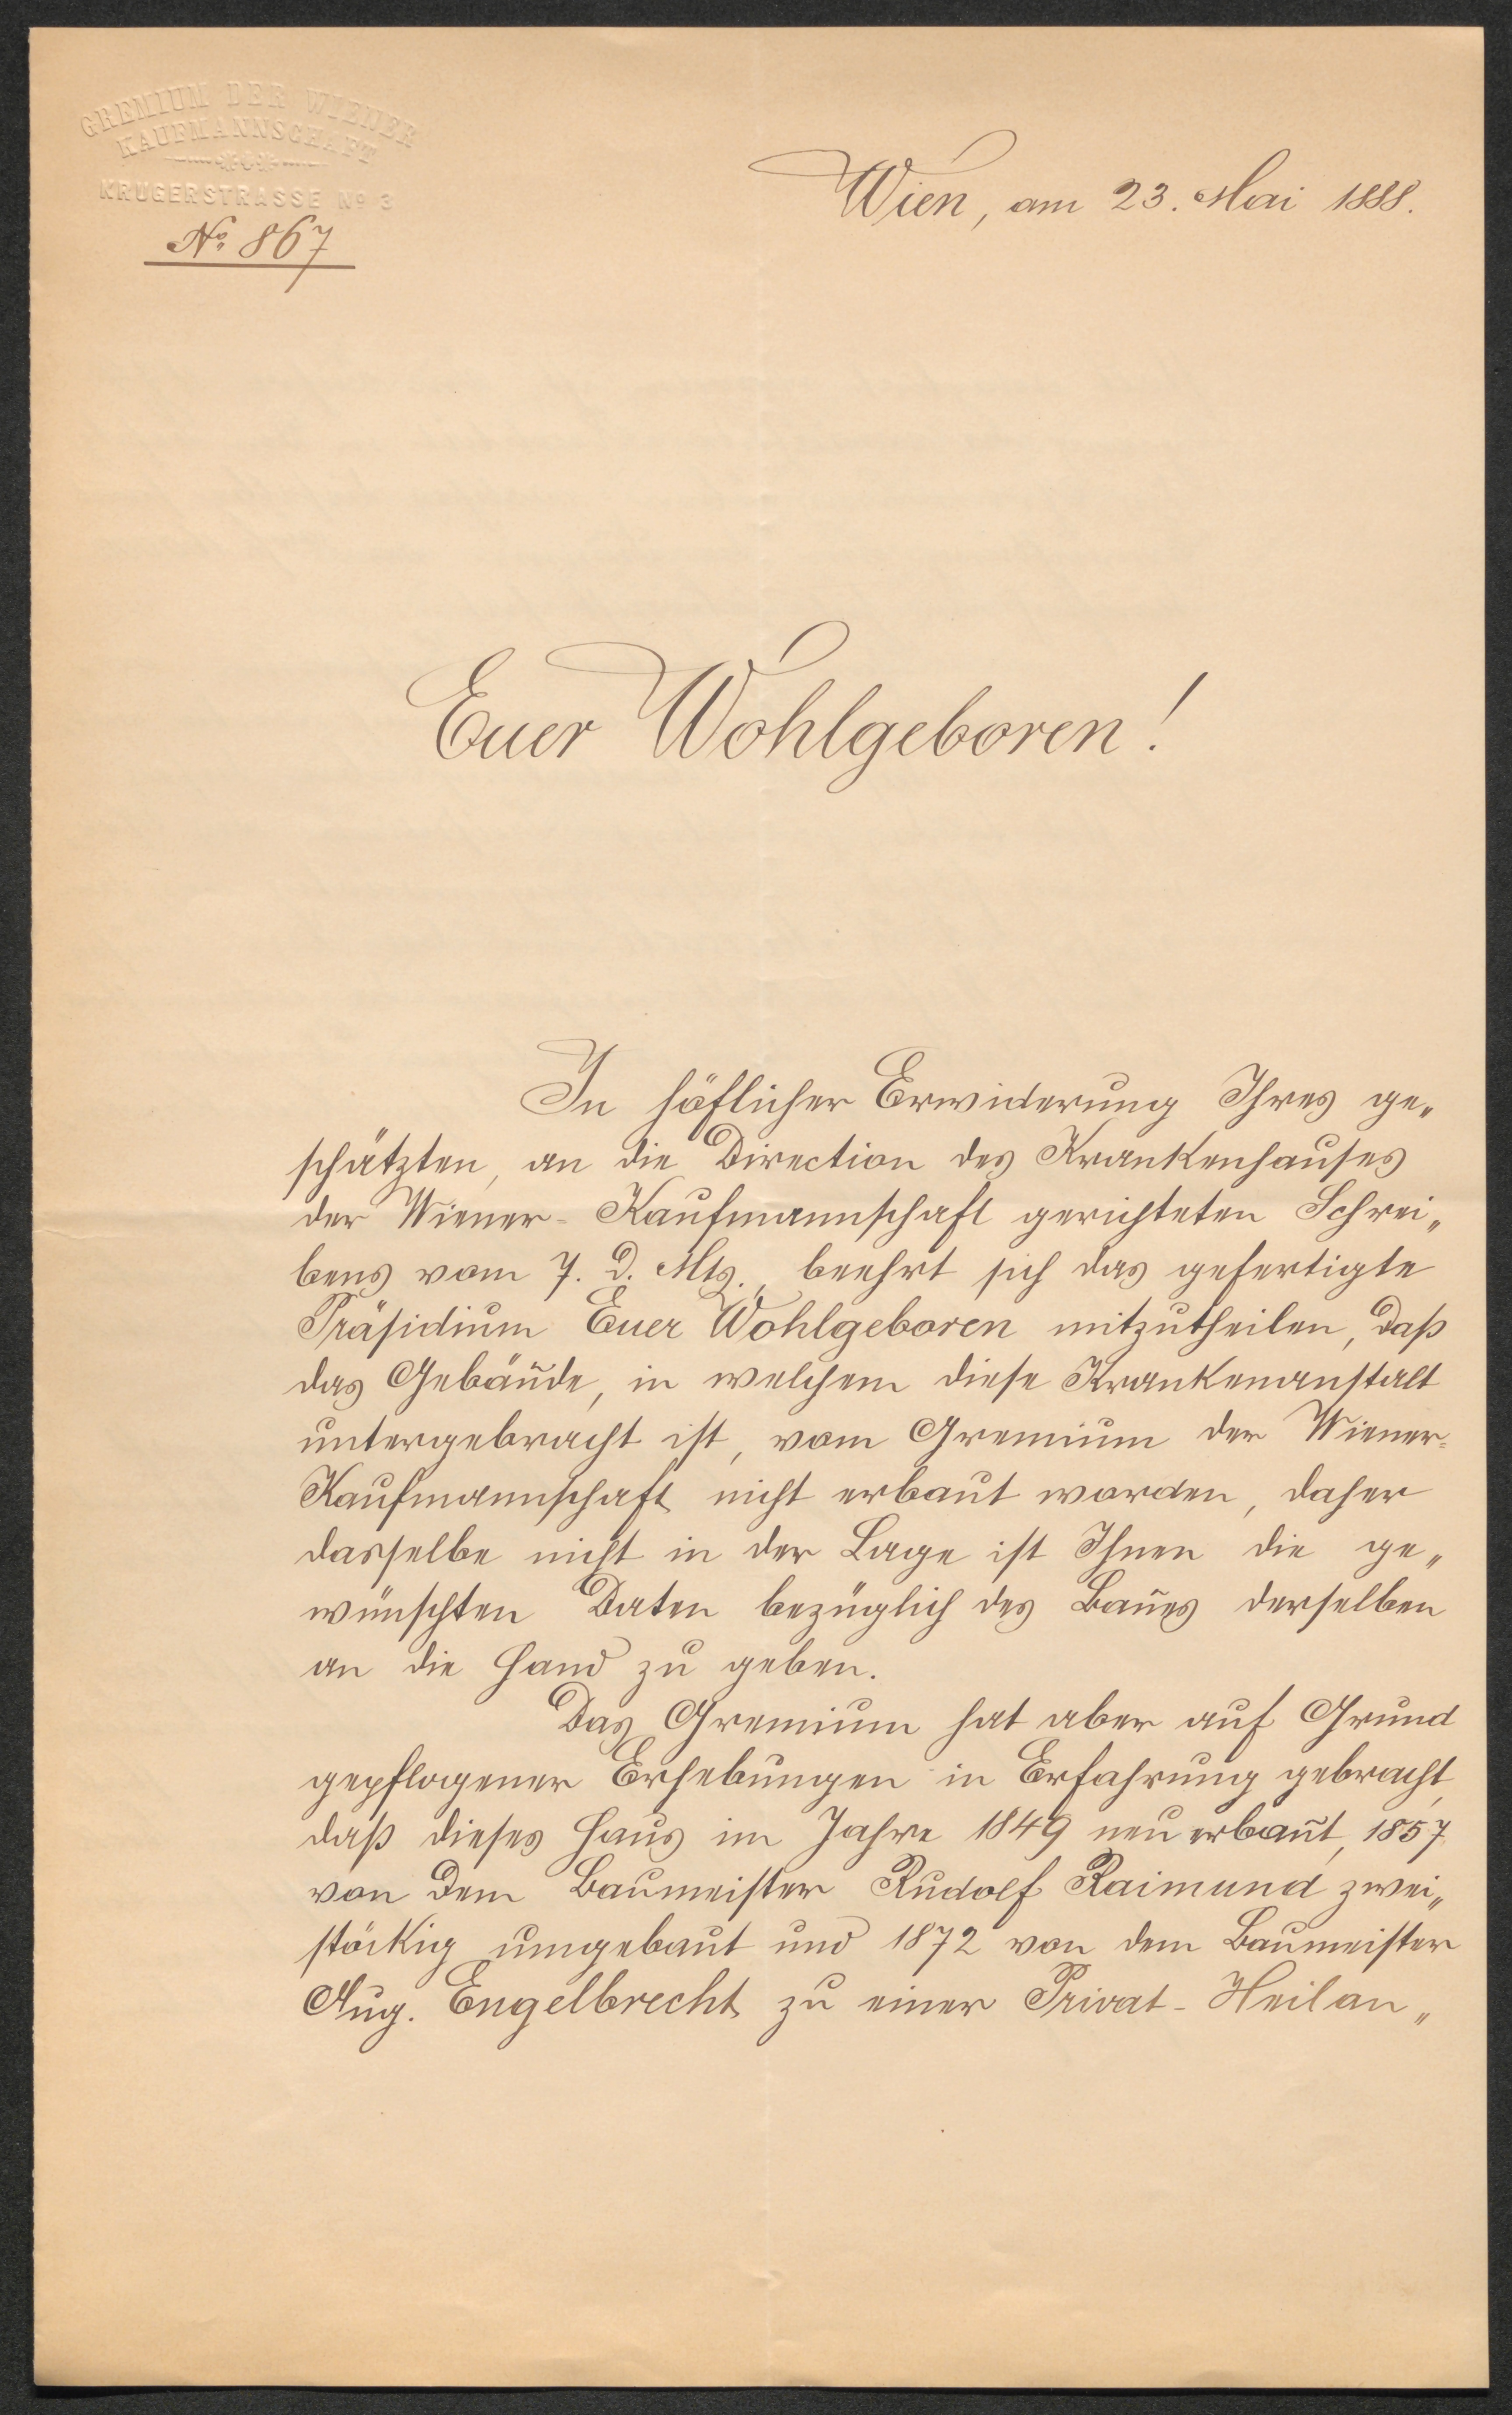 GREMIUM DER WIENER
KAUFMANNSCHAFT
KRUGERSTRASSE No 3
No. 867
Wien, am 23. Mai 1888.
Euer Wohlgeboren!
In höflicher Erwiderung Ihres ge„
schätzten, an die Direction des Krankenhauses
der Wiener- Kaufmannschaft gerichteten Schrei„
bens vom 7. d. Mts., beehrt sich das gefertigte
Präsidium Euer Wohlgeboren mitzutheilen, daß
das Gebäude, in welchem diese Krankenanstalt
untergebracht ist, vom Gremium der Wiener-
Kaufmannschaft nicht erbaut worden, daher
dasselbe nicht in der Lage ist Ihnen die ge„
wünschten Daten bezüglich des Baues derselben
an die Hand zu geben.
Das Gremium hat aber auf Grund
gepflogener Erhebungen in Erfahrung gebracht,
daß dieses Haus im Jahre 1849 neu erbaut, 1857
von dem Baumeister Rudolf Raimund zwei„
stöckig umgebaut und 1872 von dem Baumeister
Aug. Engelbrecht zu einer Privat-Heilan„